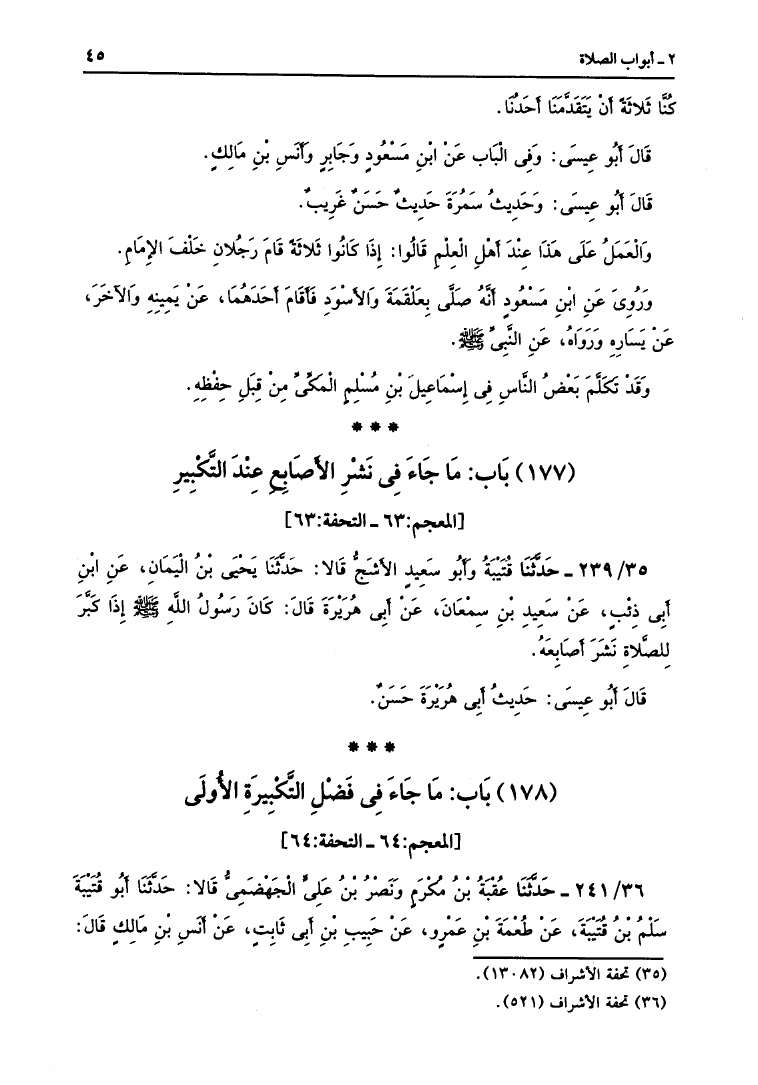 ٢ ـ أبواب الصلاة ٤٥
كُنَّا ثَلاثَةً أَنْ يَتَقَدَّمَنَا أَحَدُنَا.
قَالَ أَبُو عِيسَى: وَفِى الْبَاب عَنْ ابْنِ مَسْعُودٍ وَجَابِرٍ وَأَنَسِ بْنِ مَالِكٍ.
قَالَ أَبُو عِيسَى: وَحَدِيثُ سَمُرَةَ حَدِيثٌ حَسَنٌ غَرِيبٌ.
وَالْعَمَلُ عَلَى هَذَا عِنْدَ أَهْلِ الْعِلْمِ قَالُوا: إِذَا كَانُوا ثَلاثَةً قَامَ رَجُلانِ خَلْفَ الإِمَامِ.
وَرُوِىَ عَنِ ابْنِ مَسْعُودٍ أَنَّهُ صَلَّى بِعَلْقَمَةَ وَالأَسْوَدِ فَأَقَامَ أَحَدَهُمَا، عَنْ يَمِينِهِ وَالآخَرَ،
عَنْ يَسَارِهِ وَرَوَاهُ، عَنِ النَّبِىِّ ﷺ.
وَقَدْ تَكَلَّمَ بَعْضُ النَّاسِ فِى إِسْمَاعِيلَ بْنِ مُسْلِمٍ الْمَكِّىِّ مِنْ قِبَلِ حِفْظِهِ.
* * *
(١٧٧) بَاب: مَا جَاءَ فِى نَشْرِ الأَصَابِعِ عِنْدَ التَّكْبِيرِ
[المعجم:٦٣ ـ التحفة:٦٣]
٢٣٩/٣٥ ـ حَدَّثَنَا قُتَيْبَةُ وَأَبُو سَعِيدٍ الأَشَجُّ قَالا: حَدَّثَنَا يَحْيَى بْنُ الْيَمَانِ، عَنِ ابْنِ
أَبِى ذِئْبٍ، عَنْ سَعِيدِ بْنِ سِمْعَانَ، عَنْ أَبِى هُرَيْرَةَ قَالَ: كَانَ رَسُولُ اللَّهِ ﷺ إِذَا كَبَّرَ
لِلصَّلاةِ نَشَرَ أَصَابِعَهُ.
قَالَ أَبُو عِيسَى: حَدِيثُ أَبِى هُرَيْرَةَ حَسَنٌ.
* * *
(١٧٨) بَاب: مَا جَاءَ فِى فَضْلِ التَّكْبِيرَةِ الأُولَى
[المعجم:٦٤ ـ التحفة:٦٤]
٢٤١/٣٦ ـ حَدَّثَنَا عُقْبَةُ بْنُ مُكْرَمٍ وَنَصْرُ بْنُ عَلِىٍّ الْجَهْضَمِىُّ قَالا: حَدَّثَنَا أَبُو قُتَيْبَةَ
سَلْمُ بْنُ قُتَيْبَةَ، عَنْ طُعْمَةَ بْنِ عَمْرٍو، عَنْ حَبِيبِ بْنِ أَبِى ثَابِتٍ، عَنْ أَنَسِ بْنِ مَالِكٍ قَالَ:
(٣٥) تحفة الأشراف (١٣٠٨٢).
(٣٦) تحفة الأشراف (٥٢١).